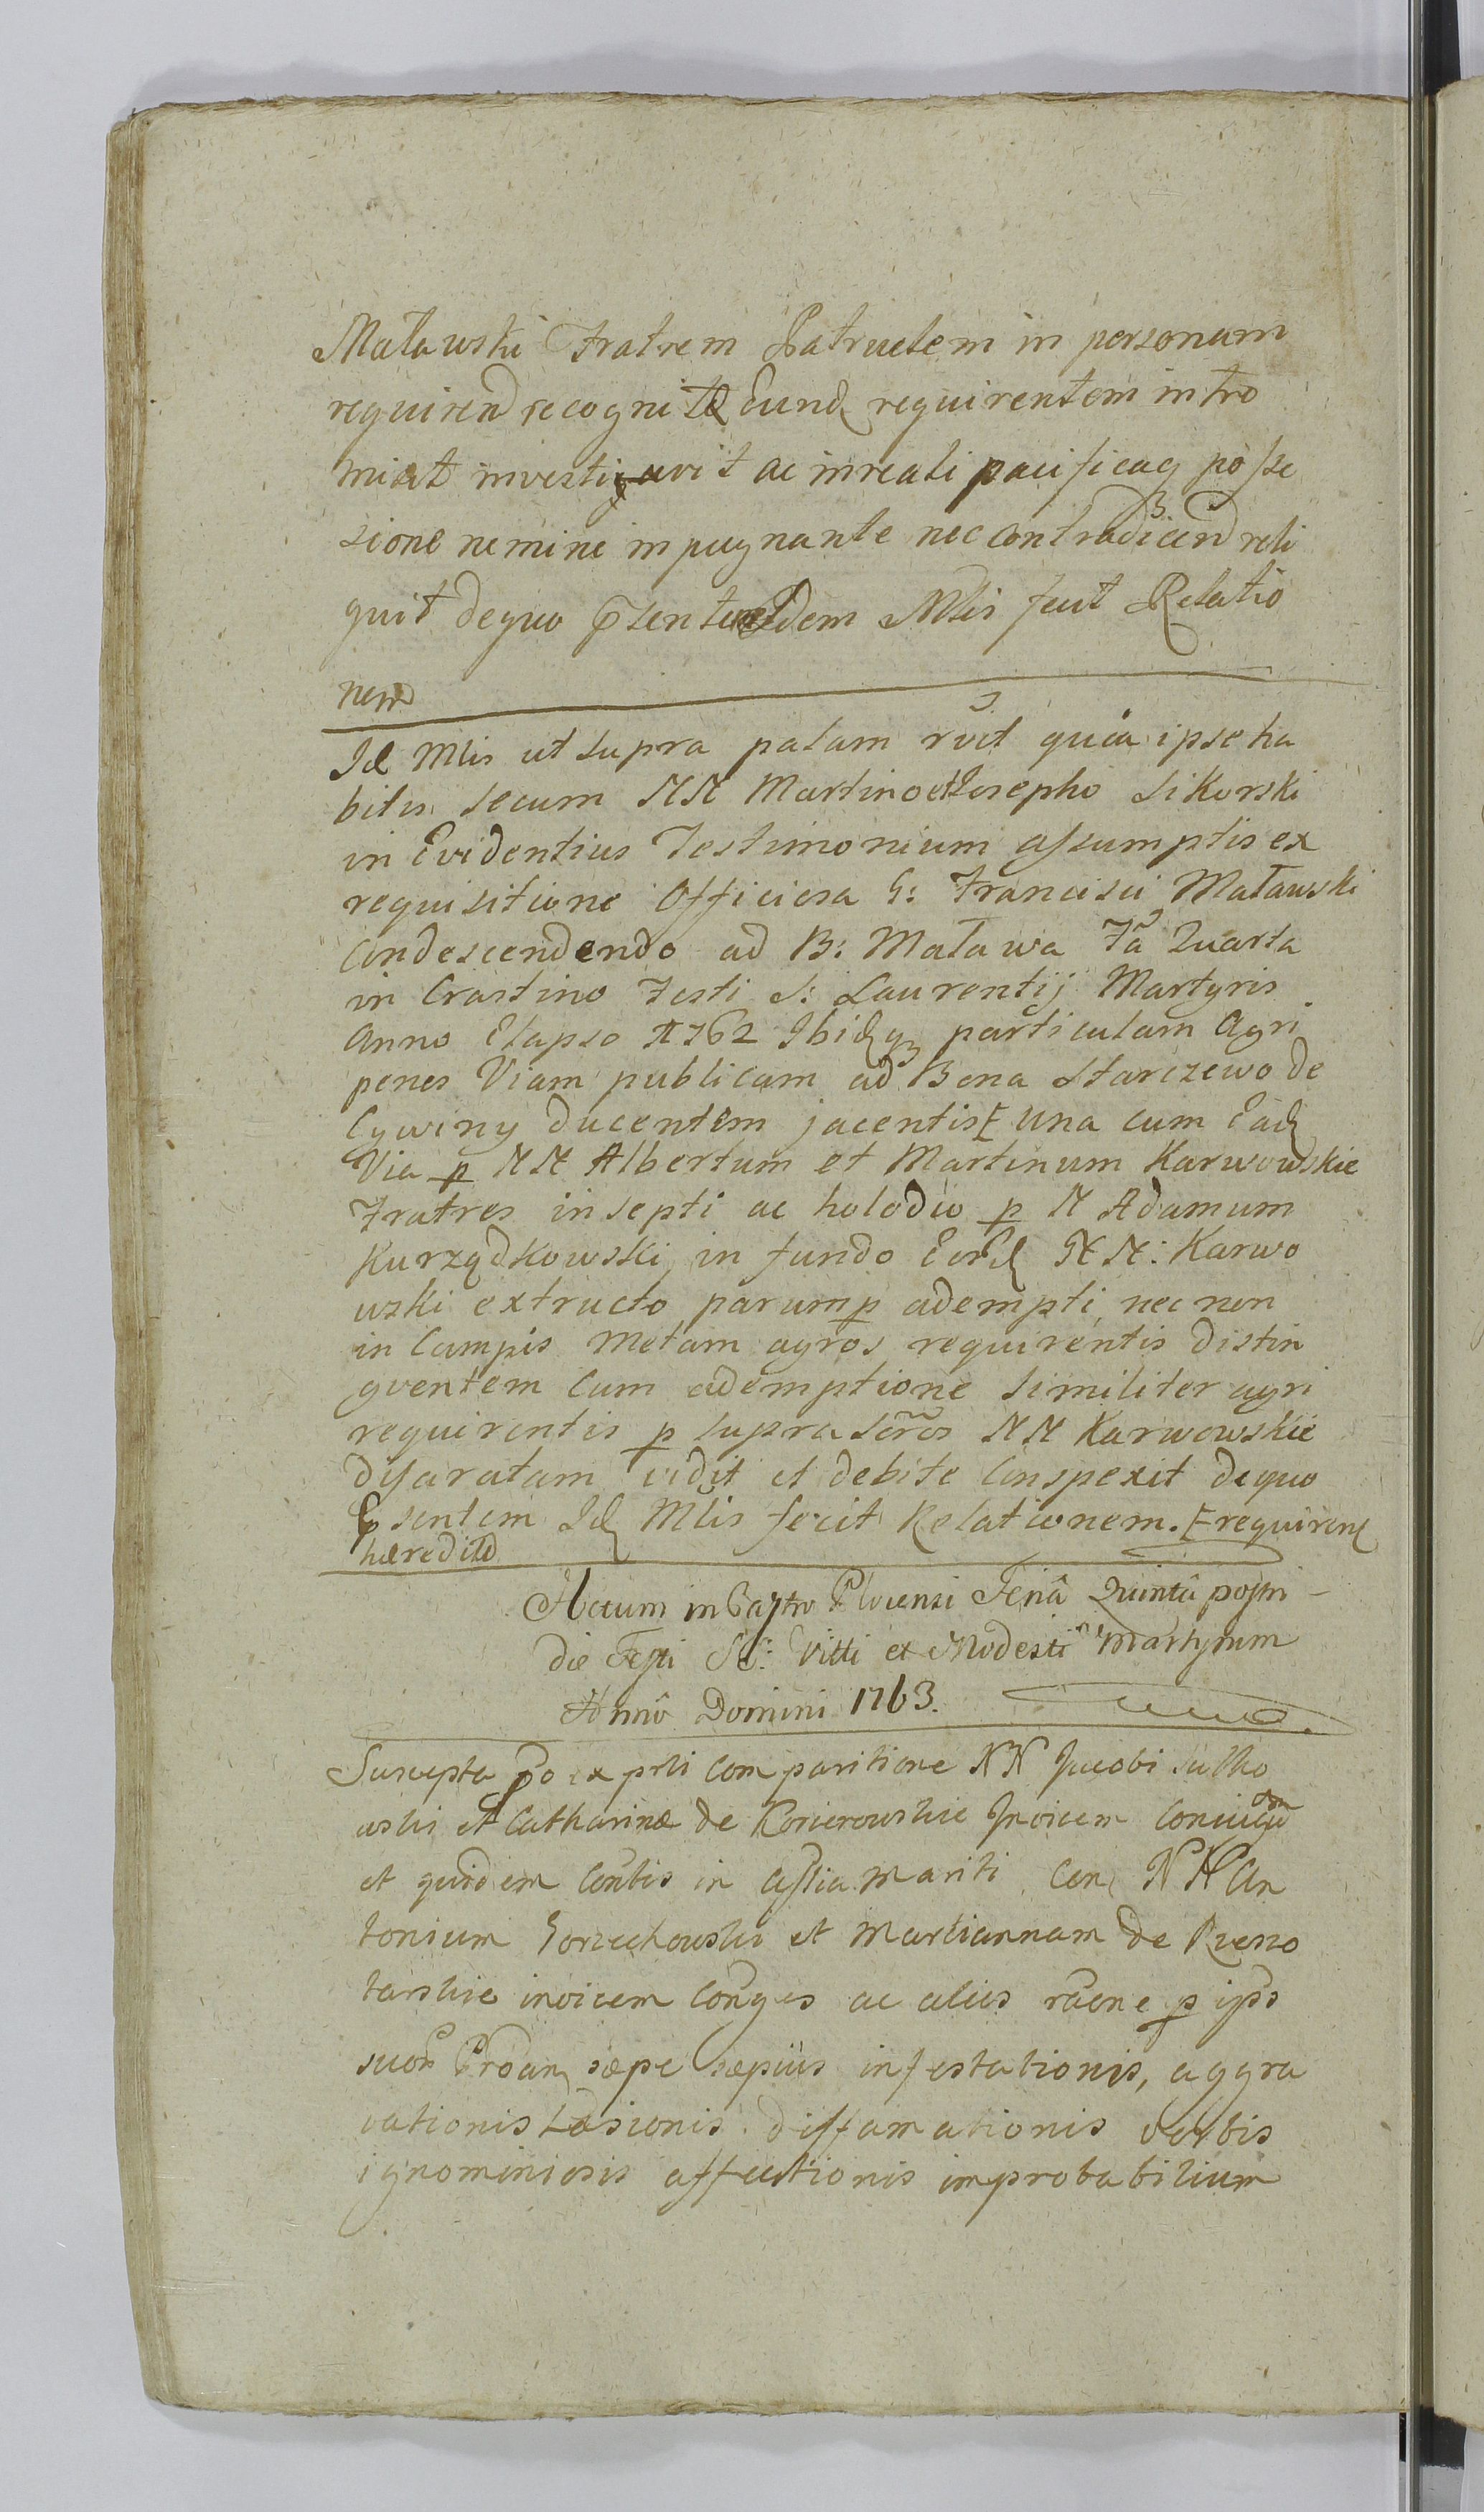 Maławski Fratrem Patruelem in personam
requirend recognit Eund requirentem intro
misit investigavit ac in reali pacificaq posse
sione nemine impugnante nec contradicend reli
quit dequo psentem Idem Mlis fecit Relatio
nem
Id Mlis ut supra palam rvit quia ipse ha
bitis secum NN Martino et Josepho Sikorski
in Evidentius Testimonium assumptis ex
requisitione Officiosa G: Francisci Maławski
Condescendendo ad B: Maława Fa Quarta
in Crastino Festi S: Laurentij Martyris
Anno Elapso 1762 Ibidq particulam Agri
penes Viam publicam ad Bona Starczewo de
Cywiny ducentem jacentis una cum Ead
Via p NN Albertum et Martinum Karwowskie
Fratres insepti ac holodio p N Adamum
Kurządkowski in fundo Eord NN: Karwo
wski extructo parump adempti, nec non
in Campis Metam agros requirentis distin
gventem cum ademptione similiter agri
requirentis p supra scros NN Karwowskie
disaratam vidit et debite Conspexit dequo
psentem Id Mlis fecit Relationem. requirent
hæredit
Actum in Castro Plocensi Feriâ Quintâ postri-
die Festi SS: Vitti et Modesti Martyrum
Annô Domini 1763.
Suscepta po ex prli Comparitione NN Jacobi Sutko
wski et Catharinæ de Invicem Coniugu
et quidem Contis in assia mariti Con NN An
tonium Gorzechowski et Mariannam de
invicem Conges ac aliis raone p ipsos
suor sæpe sæpius infestationis, aggra
vationis læsionis diffamationis verbis
ignominiosis affectionis improbabilium